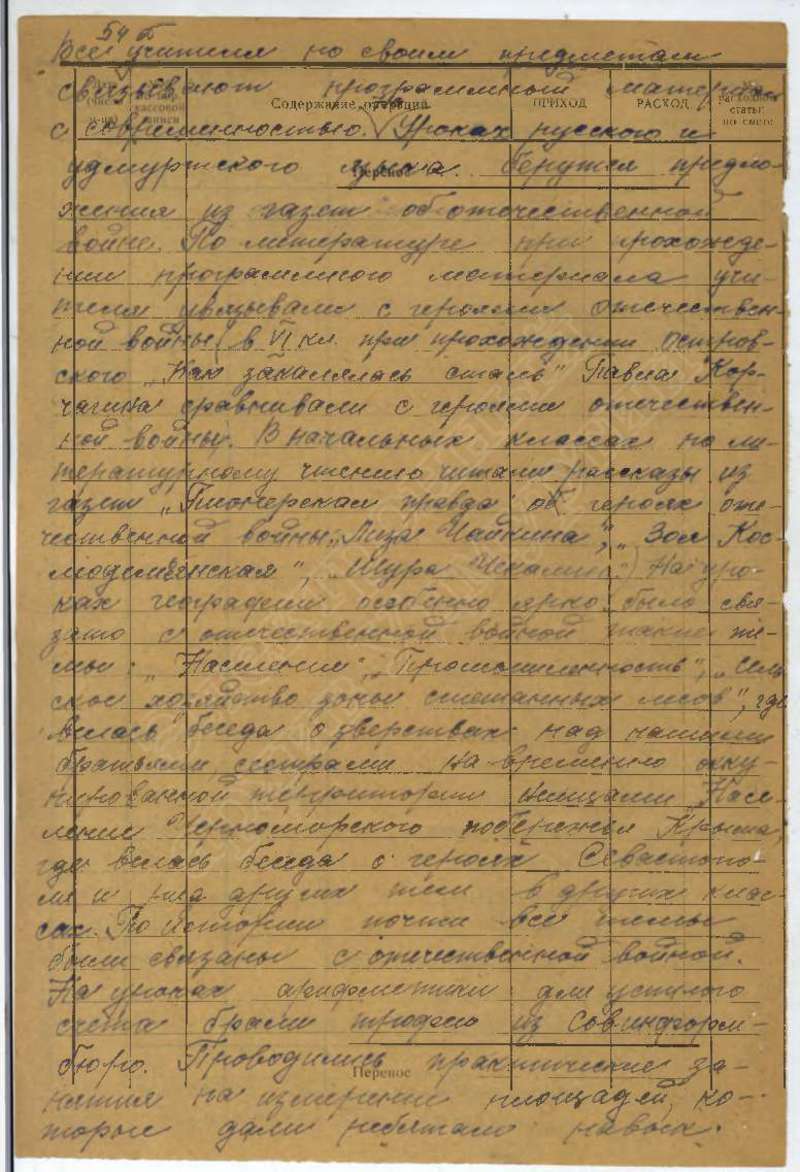 54 б
Все учителя по своим предметам
связывают программный материал
Содержание операций ПРИХОД РАСХОД статьи по смете
с современностью. Уроках русского и
удмуртского языка берутся предло-
Перенос
жения из газет об отечественной
войне. По литературе при прохожде-
нии программного материала учи-
теля увязывали с героями отечествен-
ной войны, в VI кл. при прохождении Остров-
ского „Как закалялась сталь" Павла Кор-
чагина сравнивали с героями отечествен-
ной войны. В начальных классах по ли-
тературному чтению читали рассказы из
газет „Пионерская правда" об героях оте-
чественной войны: „Лиза Чайкина", „Зоя Кос-
модемьянская", „Шура Чекалин". На уро-
ках географии особенно ярко было свя-
зано с отечественной войной такие те-
мы: „Население", „Промышленность", „Сель
ское хозяйство зоны смешанных лесов", где
велась беседа о зверствах над нашими
братьями, сестрами на временно окку-
пированной территории немцами. Насе-
ление Черноморского побережья Крыма,
где велась беседа о героях Севастопо-
ля и ряд других тем в других клас-
сах. По истории почти все темы
были связаны с отечественной войной.
На уроках арифметики для устного
счета брали трофею из Совинформ-
бюро. Проводились практические за-
Перенос
нятия на измерение площадей, ко-
торые дали ребятам навык.